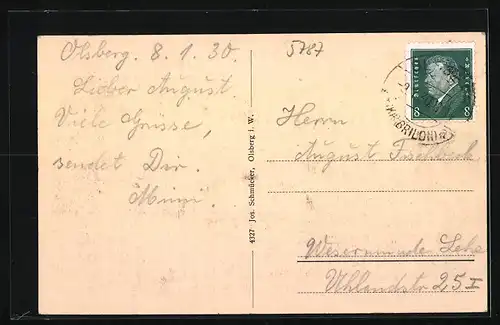 Olsberg. 8.1.30.
Lieber August.
Viele Grüsse,
sendet Dir.
Mimi.
5787
4327 Jos. Schmücker, Olsberg i. W.
8 8
(KR. BRILON)
Herrn
August
Wesermünde Lehe
Uhlandstr 25 I